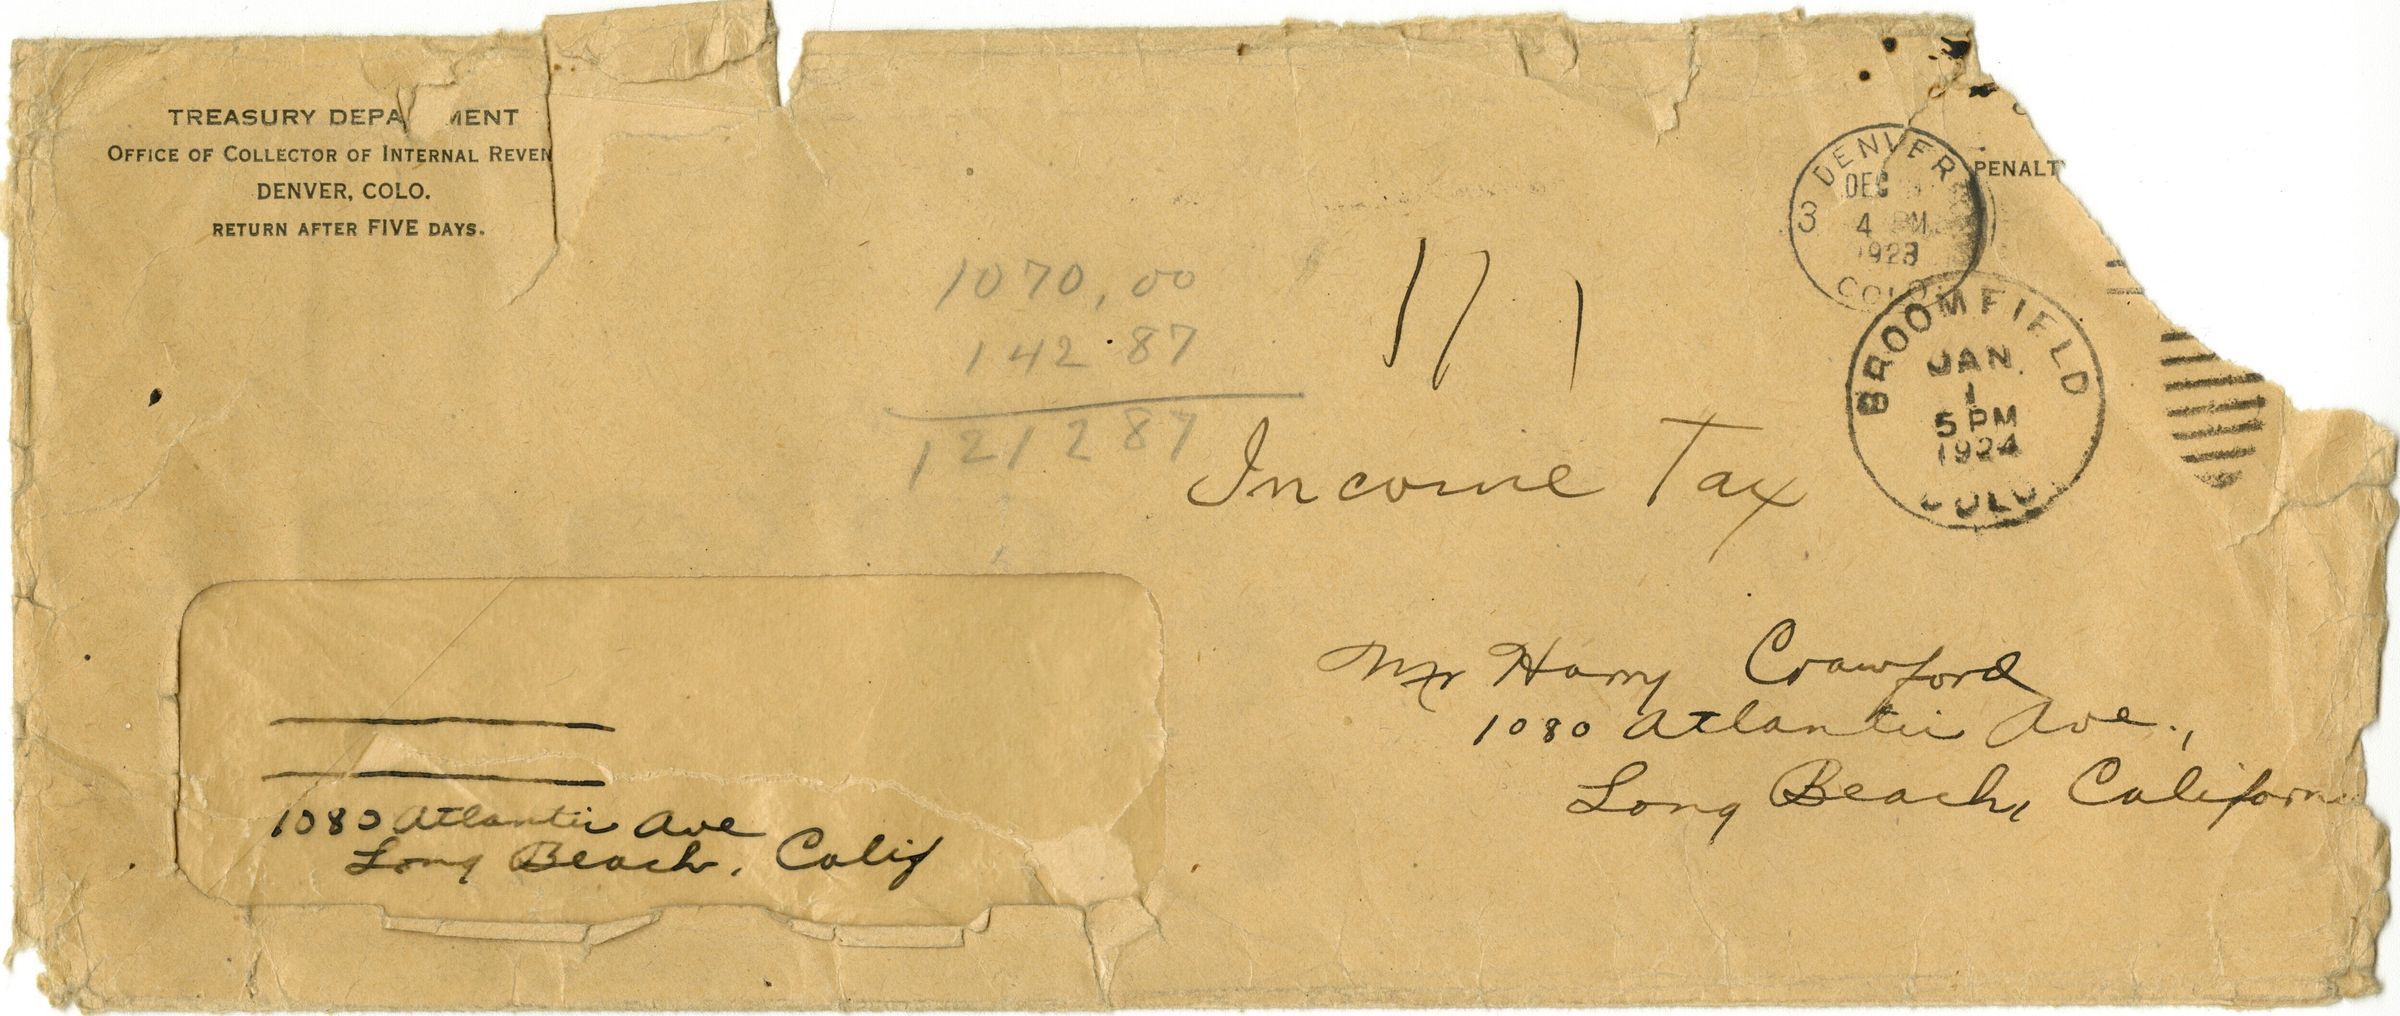 TREASURY DEPA MENT
OFFICE OF COLLECTOR OF INTERNAL REVEN
DENVER, COLO.
RETURN AFTER FIVE DAYS.
PENALT
DENVER
DEC
3 4 PM
1923
COLO
BROOMFIELD
JAN.
1
5 PM
1924
COLO
1070,00
142.87
121287
Income Tax
Mr Harry Crawford
1080 Atlantic Ave.,
Long Beach, Californ
1080 Atlantic Ave
Long Beach, Calif